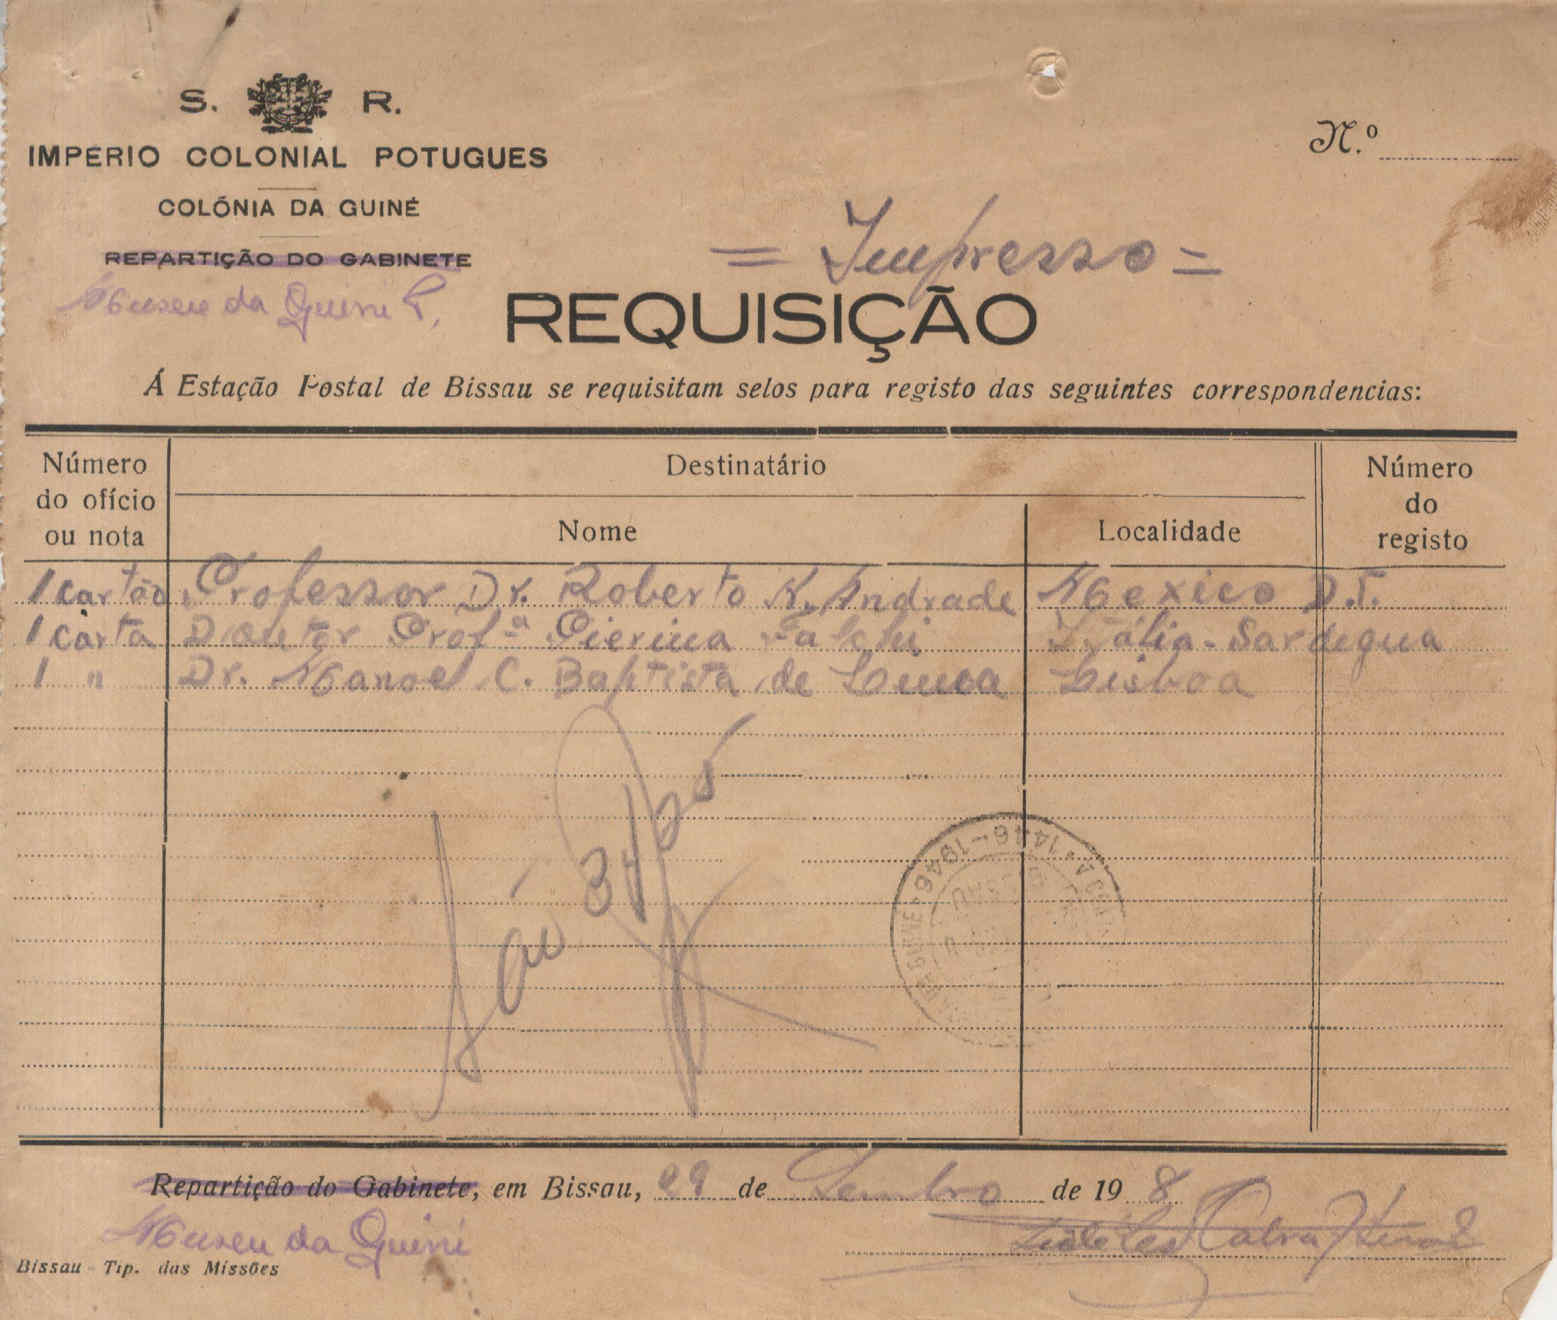 S. R.
IMPERIO COLONIAL POTUGUES
COLÓNIA DA GUINÉ
REPARTIÇÃO DO GABINETE
Museu da Guiné P.
N.º
= Impresso =
REQUISIÇÃO
Á Estação Postal de Bissau se requisitam selos para registo das seguintes correspondencias:
Número do ofício ou nota
Destinatário
Nome
Localidade
Número do registo
1 cartão Professor Dr. Roberto K. Andrade Mexico D.F.
1 carta Doutor Prof.ª Pierina Falchi Itália - Sardegna
1 " Dr. Manoel C. Baptista de Lisboa
São
1446-1946
Repartição do Gabinete, em Bissau, 29 de de 19 8
Museu da Guiné
Bissau - Tip. das Missões